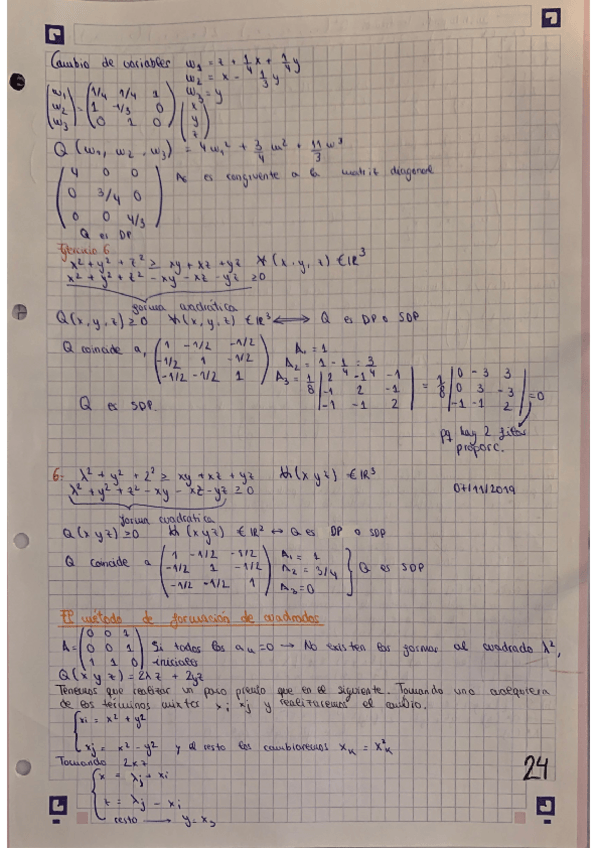 Cambio de variables w₁ = z + 1/4 x + 1/4 y
w₂ = x - 1/3 y
w₃ = y
(w₁ w₂ w₃) = (1/4 1/4 1
1 -1/3 0
0 1 0) (x y z)
Q (w₁, w₂, w₃) = 4w₁² + 3/4 w² + 11/3 w³
(4 0 0
0 3/4 0
0 0 4/3)
A es congruente a la matriz diagonal
Q es DP
Ejercicio 6.
x² + y² + z² ≥ xy + xz + yz ∀ (x, y, z) ∈ ℝ³
x² + y² + z² - xy - xz - yz ≥ 0
forma cuadrática
Q (x, y, z) ≥ 0 ∀ (x, y, z) ∈ ℝ³ ⟷ Q es DP o SDP
Q coincide a, (1 -1/2 -1/2
-1/2 1 -1/2
-1/2 -1/2 1)
A₁ = 1
A₂ = 1 - 1/4 = 3/4
A₃ = 1/8 |2 -1 -1
-1 2 -1
-1 -1 2| = 1/8 |0 -3 3
0 3 -3
-1 -1 2| = 0
Q es SDP.
pq hay 2 filas
proporc.
6. x² + y² + z² ≥ xy + xz + yz ∀ (x y z) ∈ ℝ³
x² + y² + z² - xy - xz - yz ≥ 0
07/11/2019
forma cuadratica
Q (x y z) ≥ 0 ∀ (x y z) ∈ ℝ² ↔ Q es DP o SDP
Q coincide a (1 -1/2 -1/2
-1/2 1 -1/2
-1/2 -1/2 1)
A₁ = 1
A₂ = 3/4
A₃ = 0
} Q es SDP
EP método de formación de cuadrados
A = (0 0 1
0 0 1
1 1 0) Si todos los aᵢᵢ = 0 → No existen las formas al cuadrado x²,
iniciales
Q (x y z) = 2xz + 2yz
Tenemos que realizar un paso previo que es el siguiente. Tomando uno cualquiera
de los terminos mixtos xᵢ xⱼ y realizaremos el cambio.
xᵢ = x² + y²
xⱼ = x² - y² y el resto los cambiaremos xₖ = xₖ²
Tomando 2xz
x = xⱼ + xᵢ
z = xⱼ - xᵢ
resto → y = x₃
24